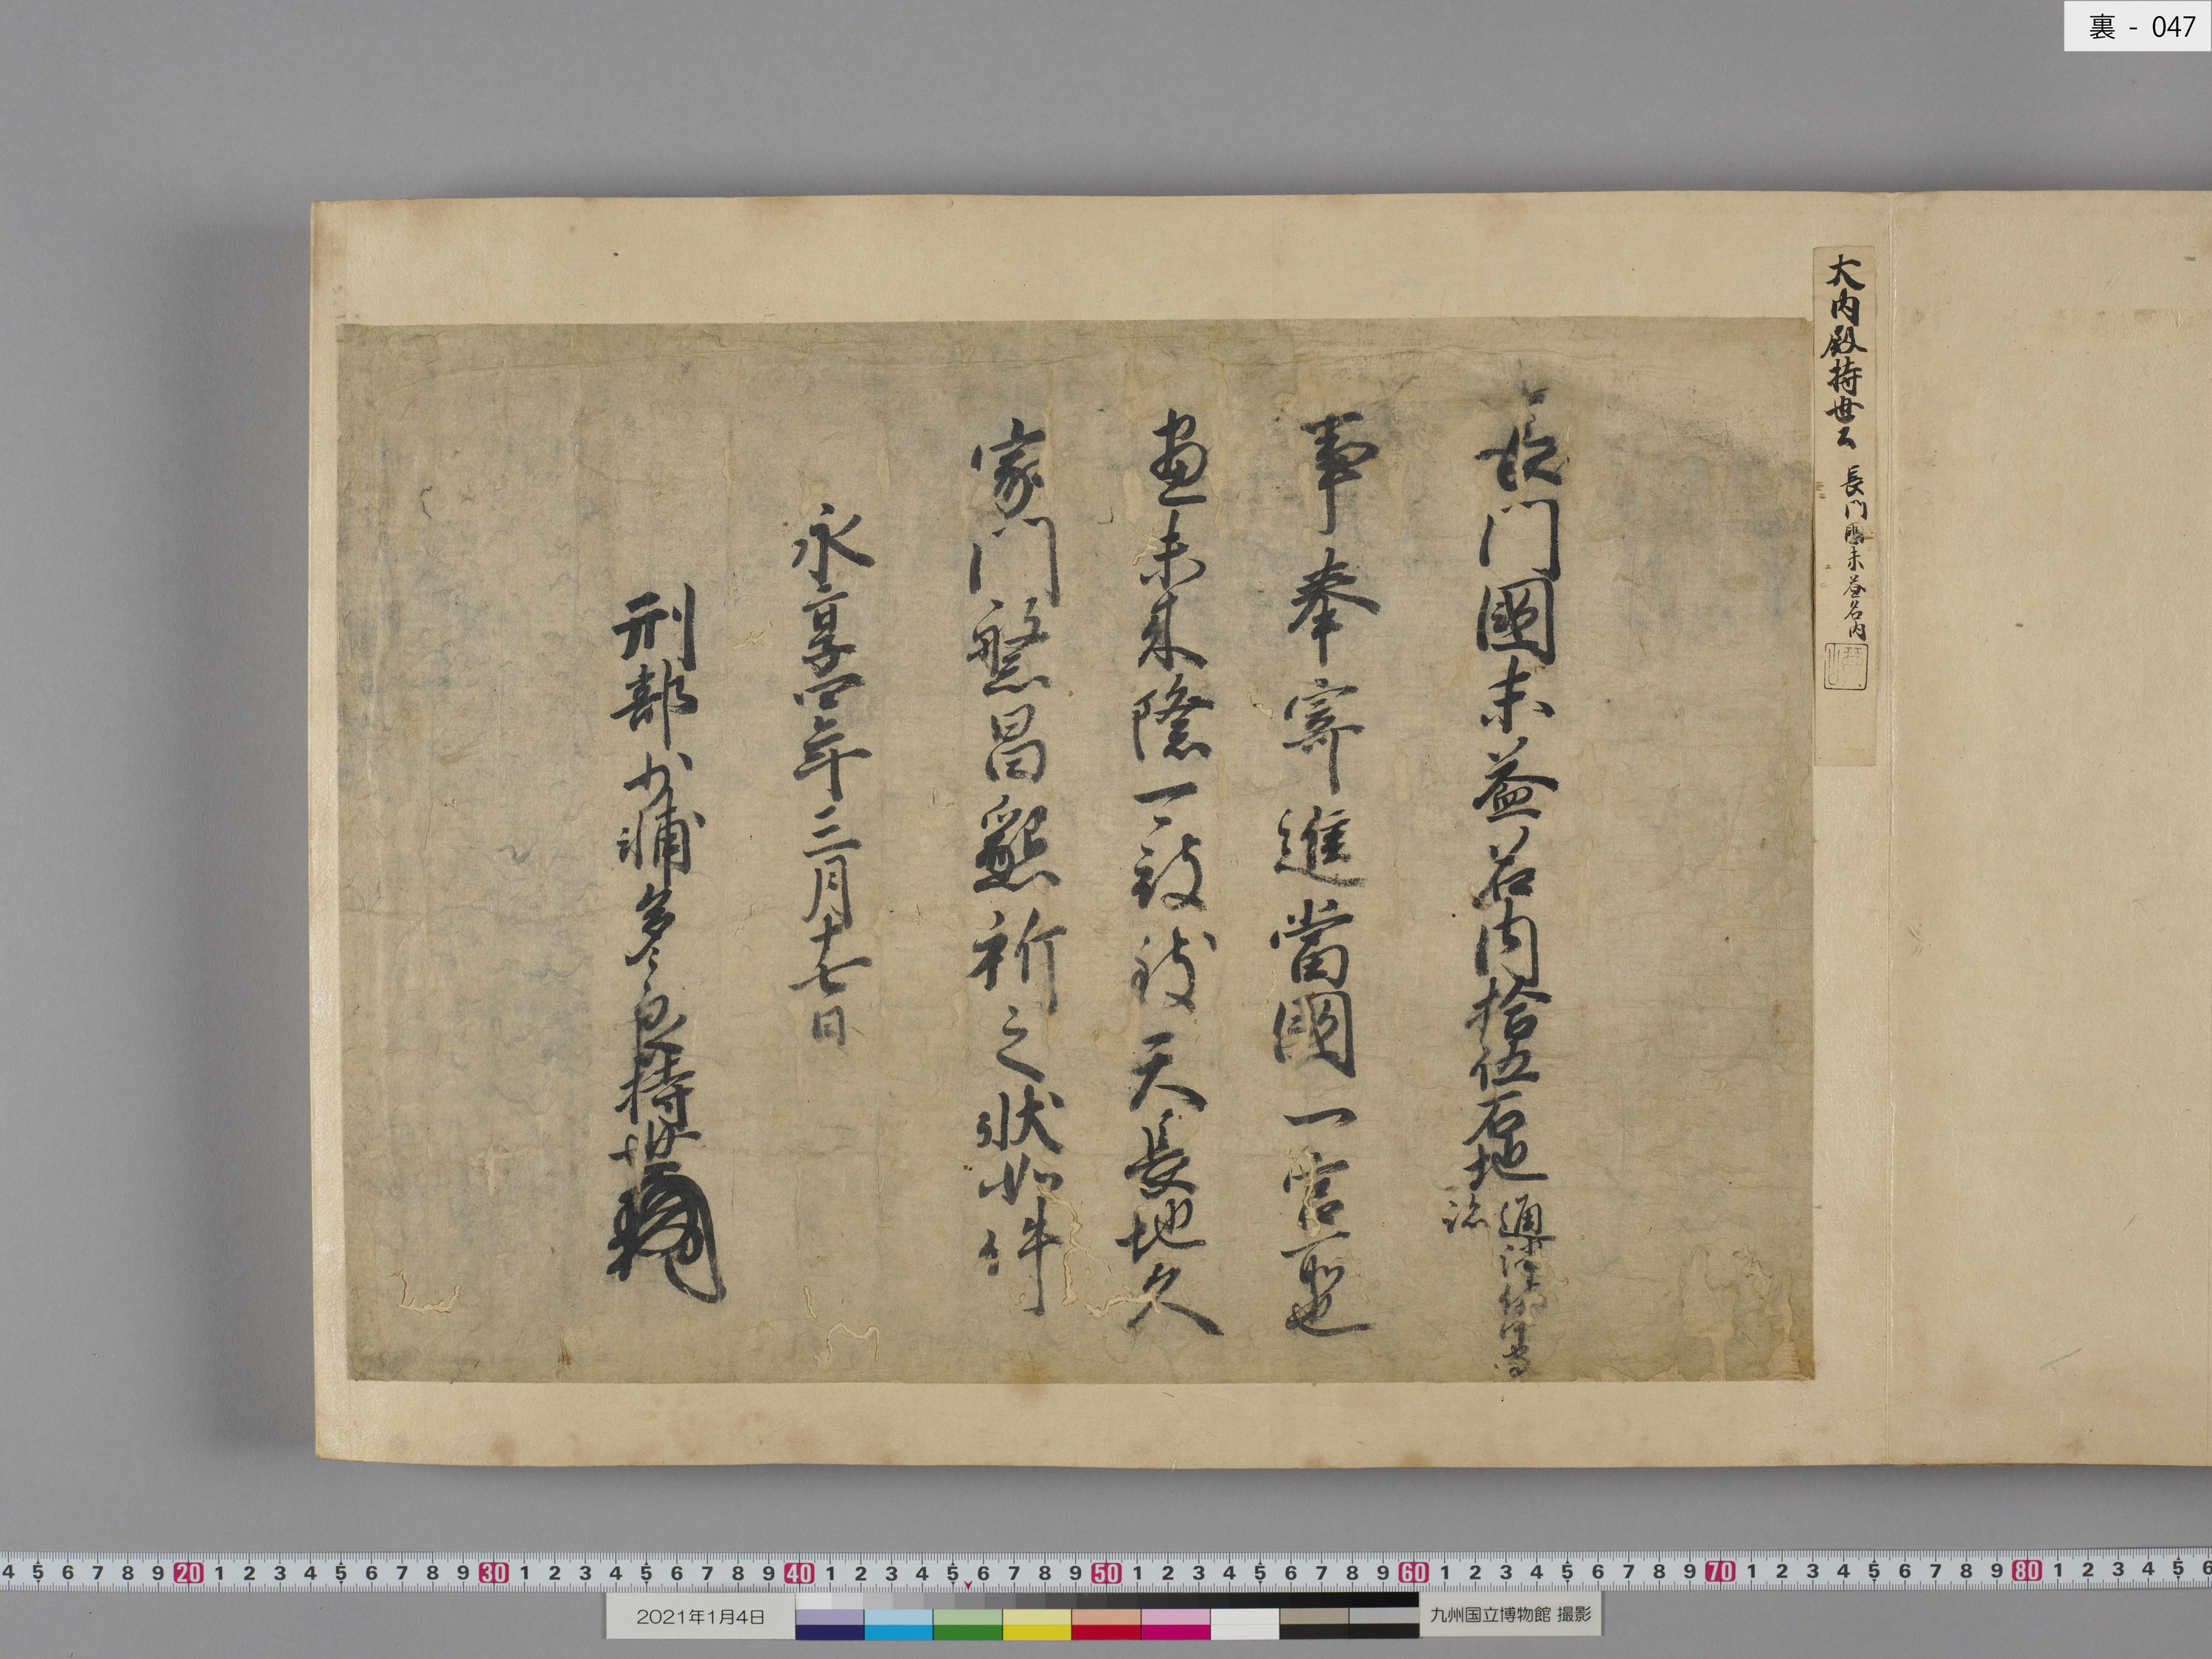 裏 - 047
大内殿持世公 長門國末益名内
長門國末益名内拾伍石地
事奉寄進當國一宮聖
畫未来際一致致天長地久
家門繁昌懇祈之状如件
永享四年三月十七日
刑部少輔多々良持世
4 5 6 7 8 9 20 1 2 3 4 5 6 7 8 9 30 1 2 3 4 5 6 7 8 9 40 1 2 3 4 5 6 7 8 9 50 1 2 3 4 5 6 7 8 9 60 1 2 3 4 5 6 7 8 9 70 1 2 3 4 5 6 7 8 9 80 1 2 3 4 5 6
2021年1月4日
九州国立博物館 撮影